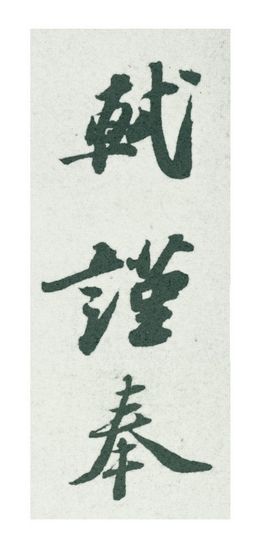 軾謹奉